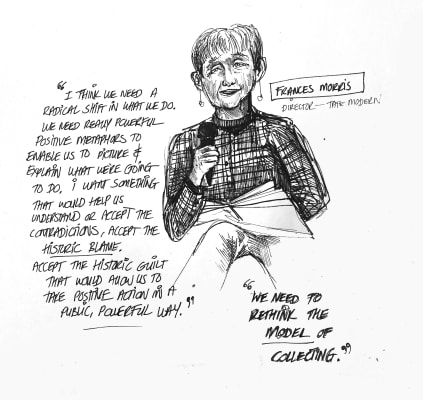 “I THINK WE NEED A
RADICAL SHIFT IN WHAT WE DO.
WE NEED REALLY POWERFUL
POSITIVE METAPHORS TO
ENABLE US TO PICTURE &
EXPLAIN WHAT WE'RE GOING
TO DO. I WANT SOMETHING
THAT WOULD HELP US
UNDERSTAND OR ACCEPT THE
CONTRADICTIONS, ACCEPT THE
HISTORIC BLAME.
ACCEPT THE HISTORIC GUILT
THAT WOULD ALLOW US TO
TAKE POSITIVE ACTION IN A
PUBLIC, POWERFUL WAY.”
FRANCES MORRIS
DIRECTOR — TATE MODERN
“WE NEED TO
RETHINK THE
MODEL OF
COLLECTING.”